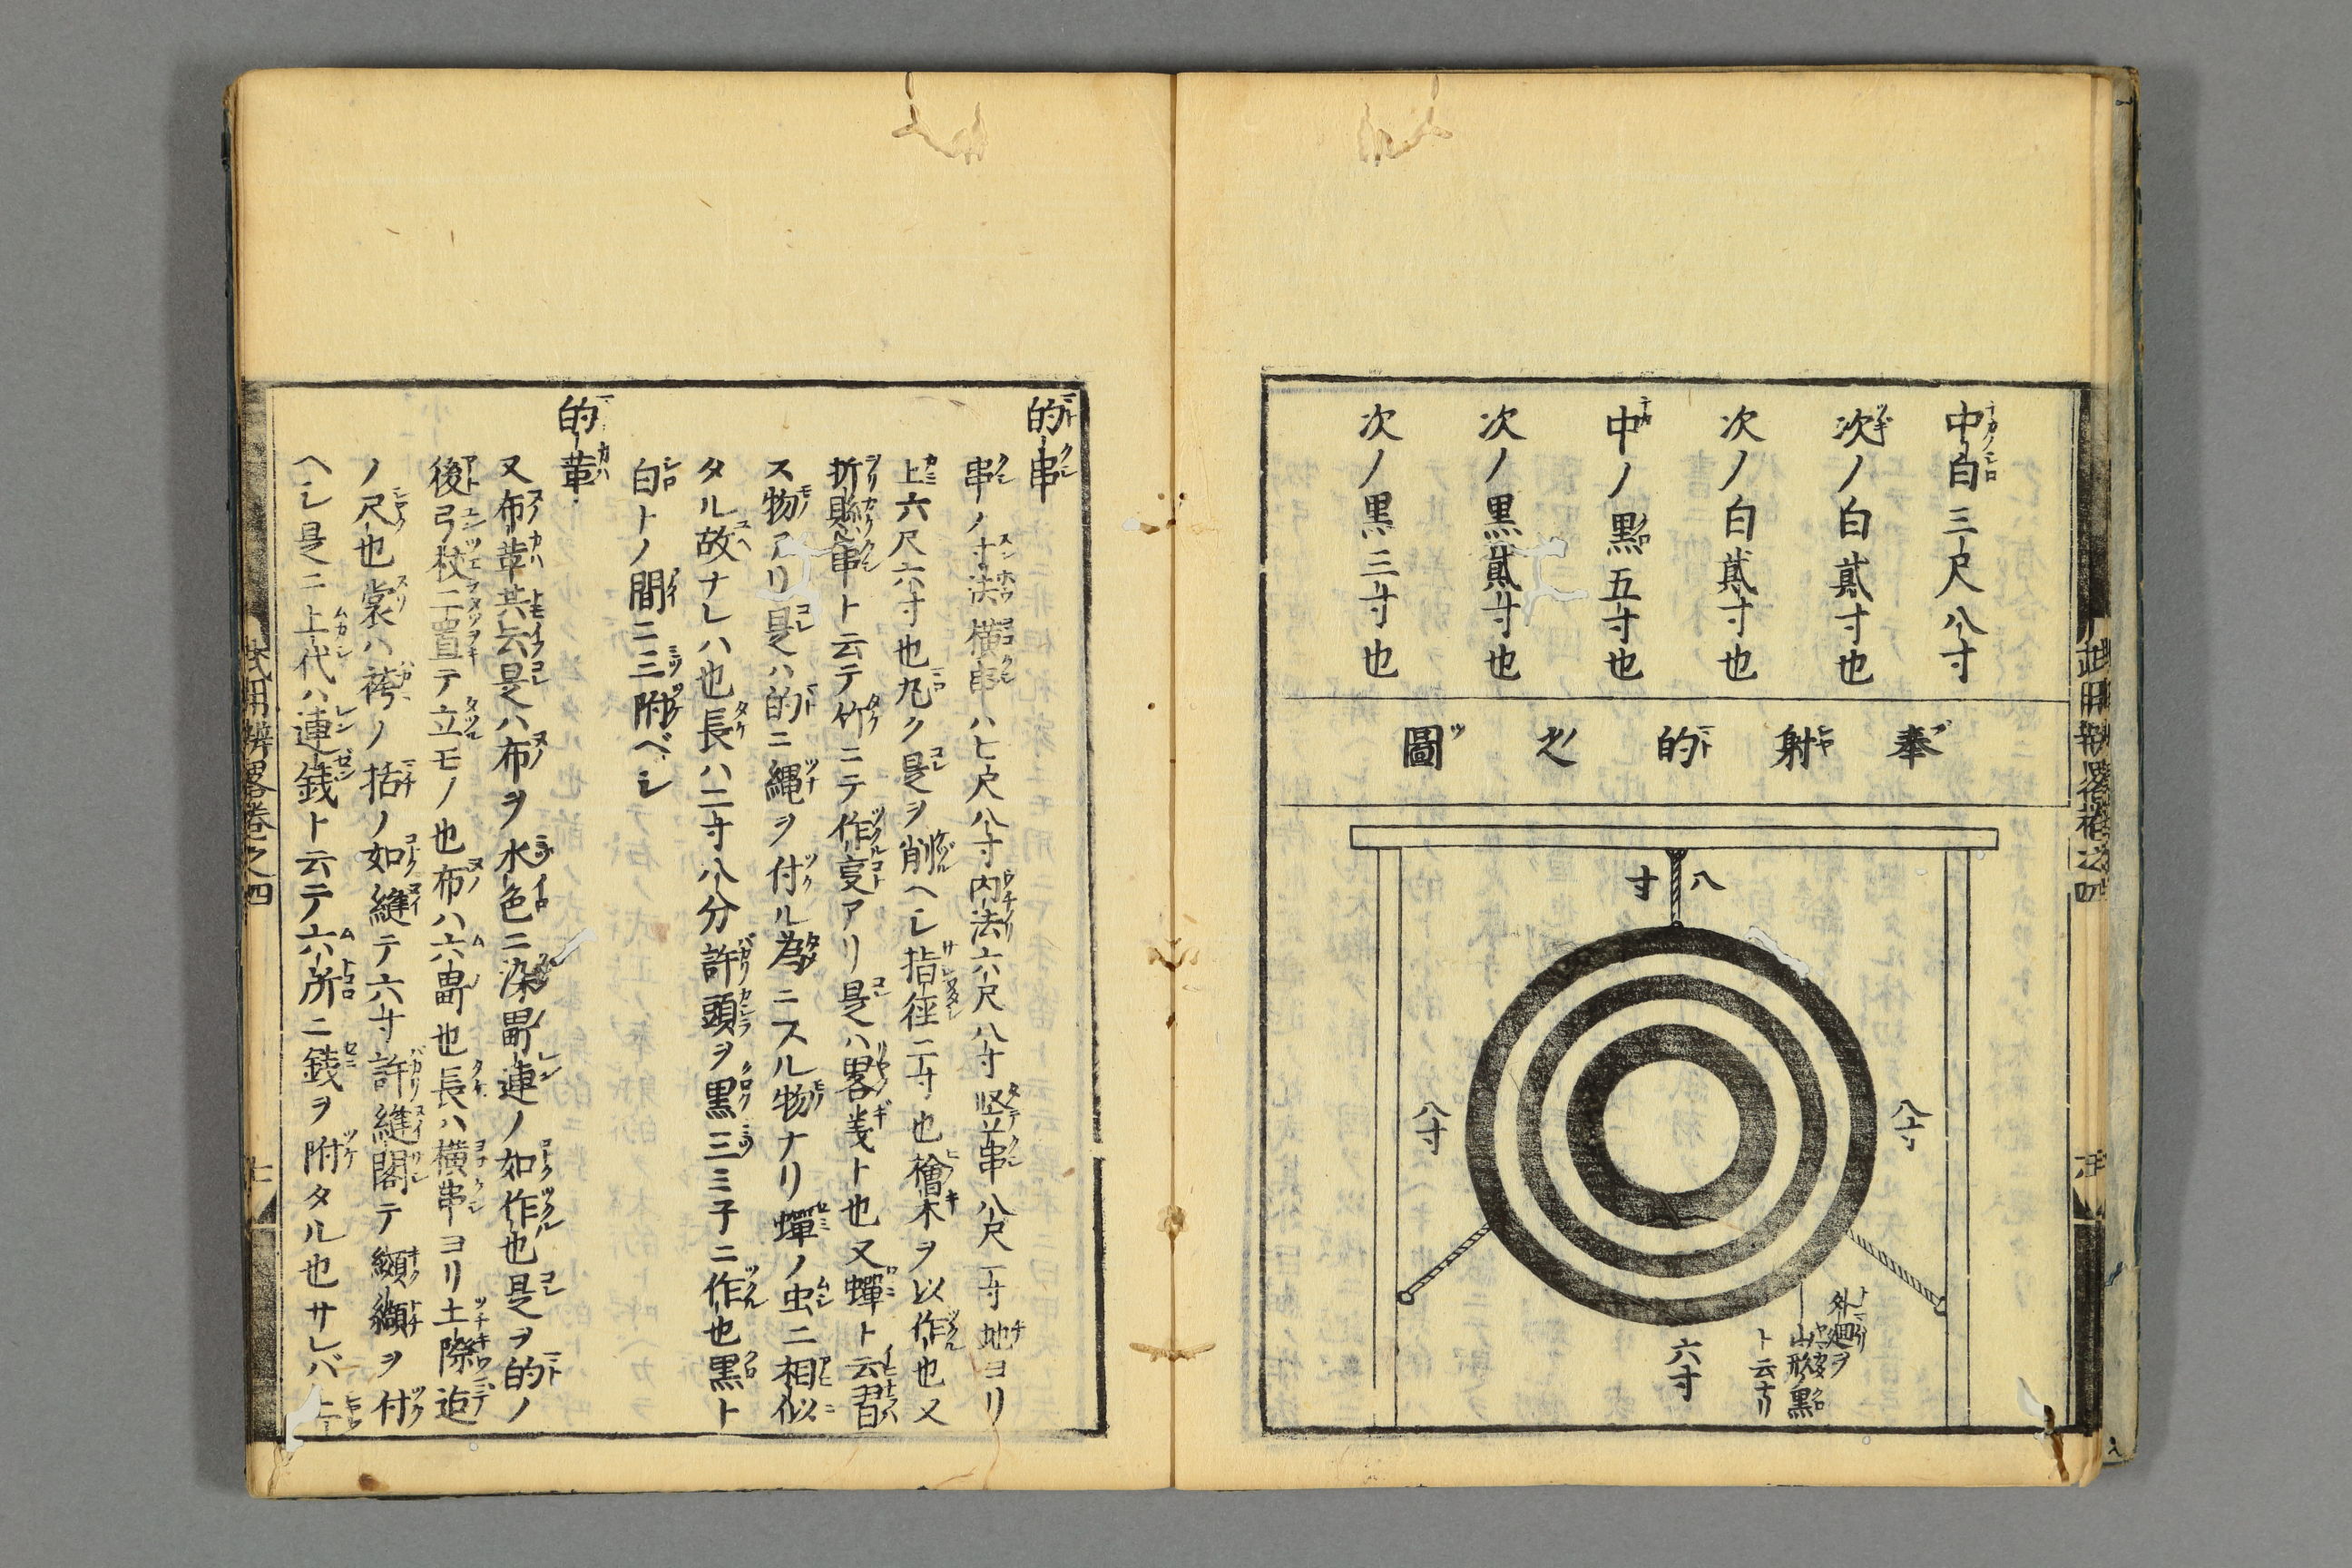 中ノ白三尺八寸
次ノ白貳寸也
次ノ白貳寸也
中ノ黒五寸也
次ノ黒貳寸也
次ノ黒三寸也
奉射的之圖
八寸
八寸
八寸
六寸
外廻ヲ
山形黒
ト云ナリ
的串
串ノ寸法横串ハ七尺八寸内法六尺八寸竪串八尺一寸地ヨリ
上六尺六寸也丸ク是ヲ削ヘシ指径二寸也檜木ヲ以作也又
折懸串ト云テ竹ニテ作亊アリ是ハ畧義ト也又蟬ト云習
ス物アリ是ハ的ニ縄ヲ付ル為ニスル物ナリ蟬ノ虫ニ相似
タル故ナレハ也長ハ二寸八分許頭ヲ黒三ミ子ニ作也黒ト
白トノ間ニ三附ベシ
的革
又布革共云是ハ布ヲ水色ニ染畱連ノ如作也是ヲ的ノ
後弓杖二置テ立モノ也布ハ六畱也長ハ横串ヨリ土際迠
ノ尺也裳ハ袴ノ括ノ如縫テ六寸許縫閣テ纐纈ヲ付
ヘシ是ニ上代ハ連錢ト云テ六所ニ錢ヲ附タル也サレバ
武用辨畧巻之四